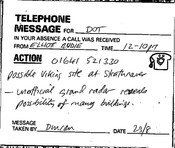 TELEPHONE
MESSAGE FOR DOT
IN YOUR ABSENCE A CALL WAS RECEIVED
FROM ELLIOT ANDIE TIME 12-10pm
ACTION 01641 521330
possible Viking site at Strathnaver
- unofficial ground radar reveals
possibility of many buildings.
MESSAGE
TAKEN BY Duncan DATE 23/8